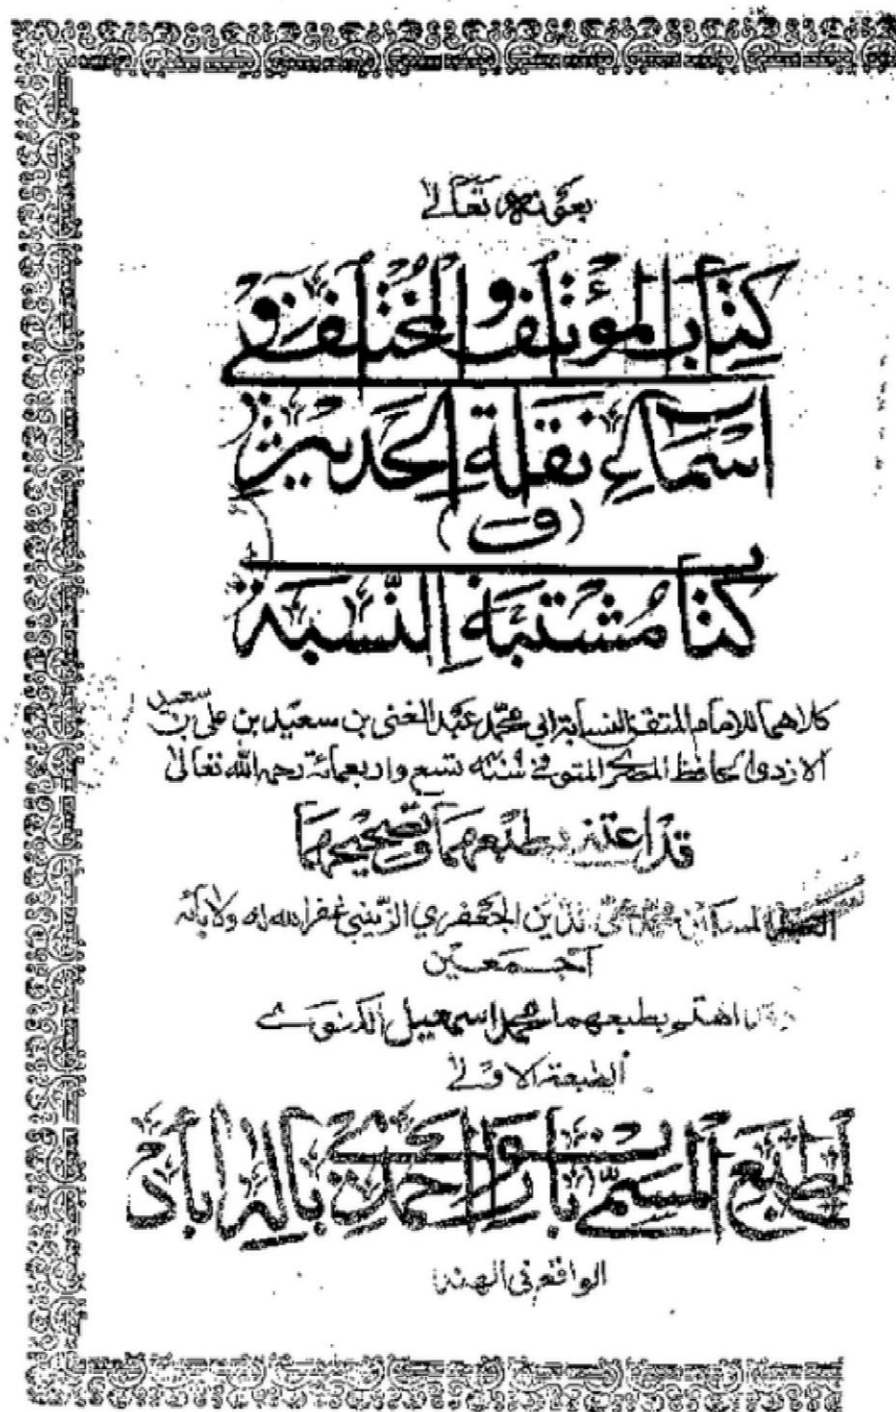 بعونه تعالى
كتاب المؤتلف والمختلف في
اسماء نقلة الحديث
(و)
كتاب مشتبه النسبة
كلاهما للامام المتقن النسابة ابي محمد عبد الغني بن سعيد بن علي بن سعيد
الازدي الحافظ المصري المتوفى سنة تسع واربعمائة رحمه الله تعالى
قد اعتنى بطبعهما وتصحيحهما
محمد محي الدين الجعفري الزينبي غفر الله له ولآبائه
اجمعين
اهتم بطبعهما محمد اسمعيل
الطبعة الاولى
المسمى بانوار احمدي باله اباد
الواقع في الهند